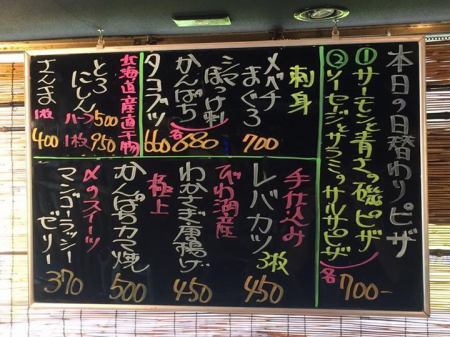 本日の日替わりピザ
①サーモンと青さの磯ピザ
②ソーセージとサラミのサルサピザ
各700-
刺身
メバチまぐろ 700
シマほっけ刺
かんぱち
各680
タコブツ 660
北海道産直干物
とろにしん ハーフ500 1枚950
さんま 1枚 400
手仕込み
レバカツ 3枚 450
びわ湖産
わかさぎ唐揚げ 450
極上
かんぱちカマ焼 500
〆のスイーツ
マンゴーラッシーゼリー 370